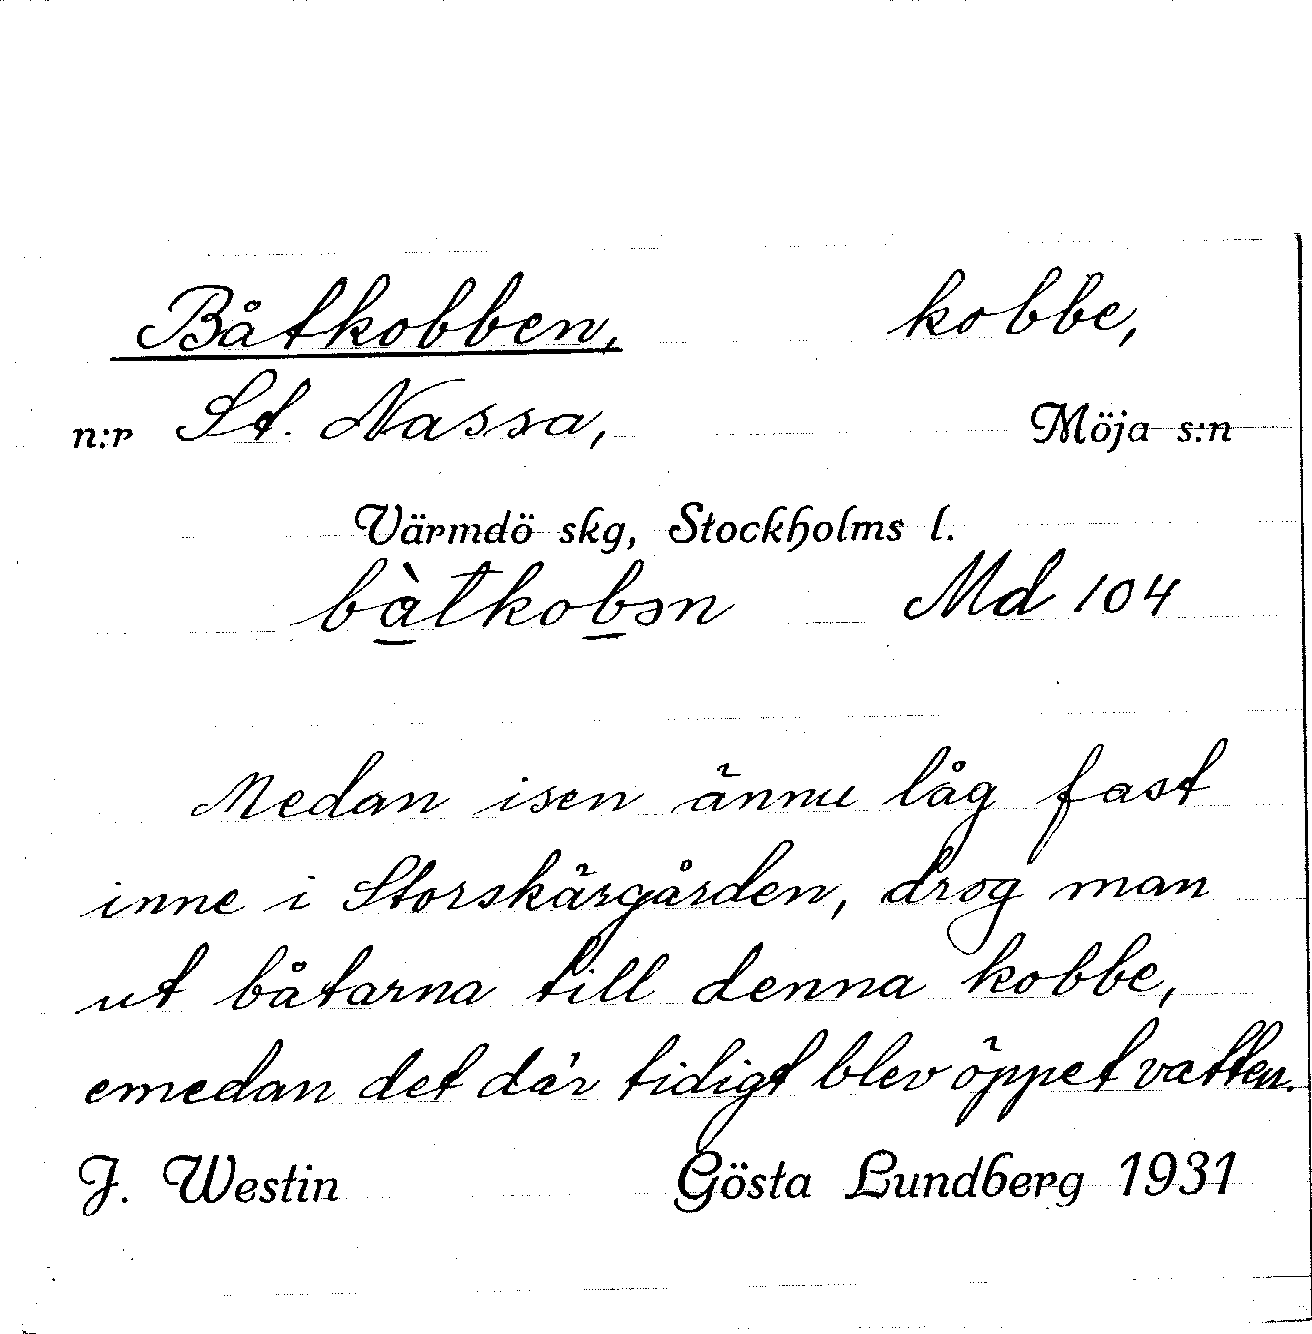 Båtkobben, kobbe,
n:r St. Nassa, Möja s:n
Värmdö skg, Stockholms l.
bàtkobən Md 104
Medan isen ännu låg fast
inne i Storskärgården, drog man
ut båtarna till denna kobbe,
emedan det där tidigt blev öppet vatten.
J. Westin Gösta Lundberg 1931